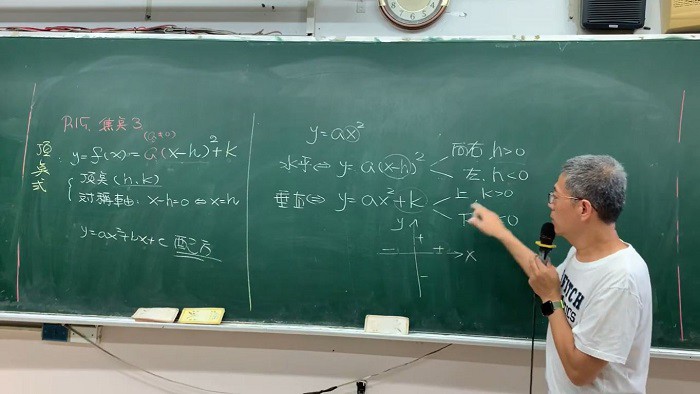 P.15. 焦点3
(a≠0)
頂点式
y=f(x)=a(x-h)²+k
頂点(h,k)
対稱軸: x-h=0 ⇔ x=h
y=ax²+bx+c 配方
y=ax²
水平⇔ y=a(x-h)²
向右,h>0
左,h<0
垂直⇔ y=ax²+k
上 k>0
下 <0
y
+
− + x
−